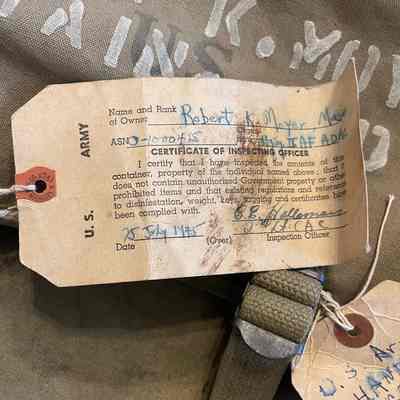 U.S.
K.
U. S. ARMY
Name and Rank
of Owner: Robert K. Meyer
ASN O-1000415 INF
CERTIFICATE OF INSPECTING OFFICER
I certify that I have inspected the contents of this
container, property of the individual named above; that
does not contain unauthorized Government property or other
prohibited items and that existing regulations and references
to disinfestation, weight, keys, tagging and certificates have
been complied with.
25 July 1945
Date (Over) Inspection Officer.
U S Ar
HAND